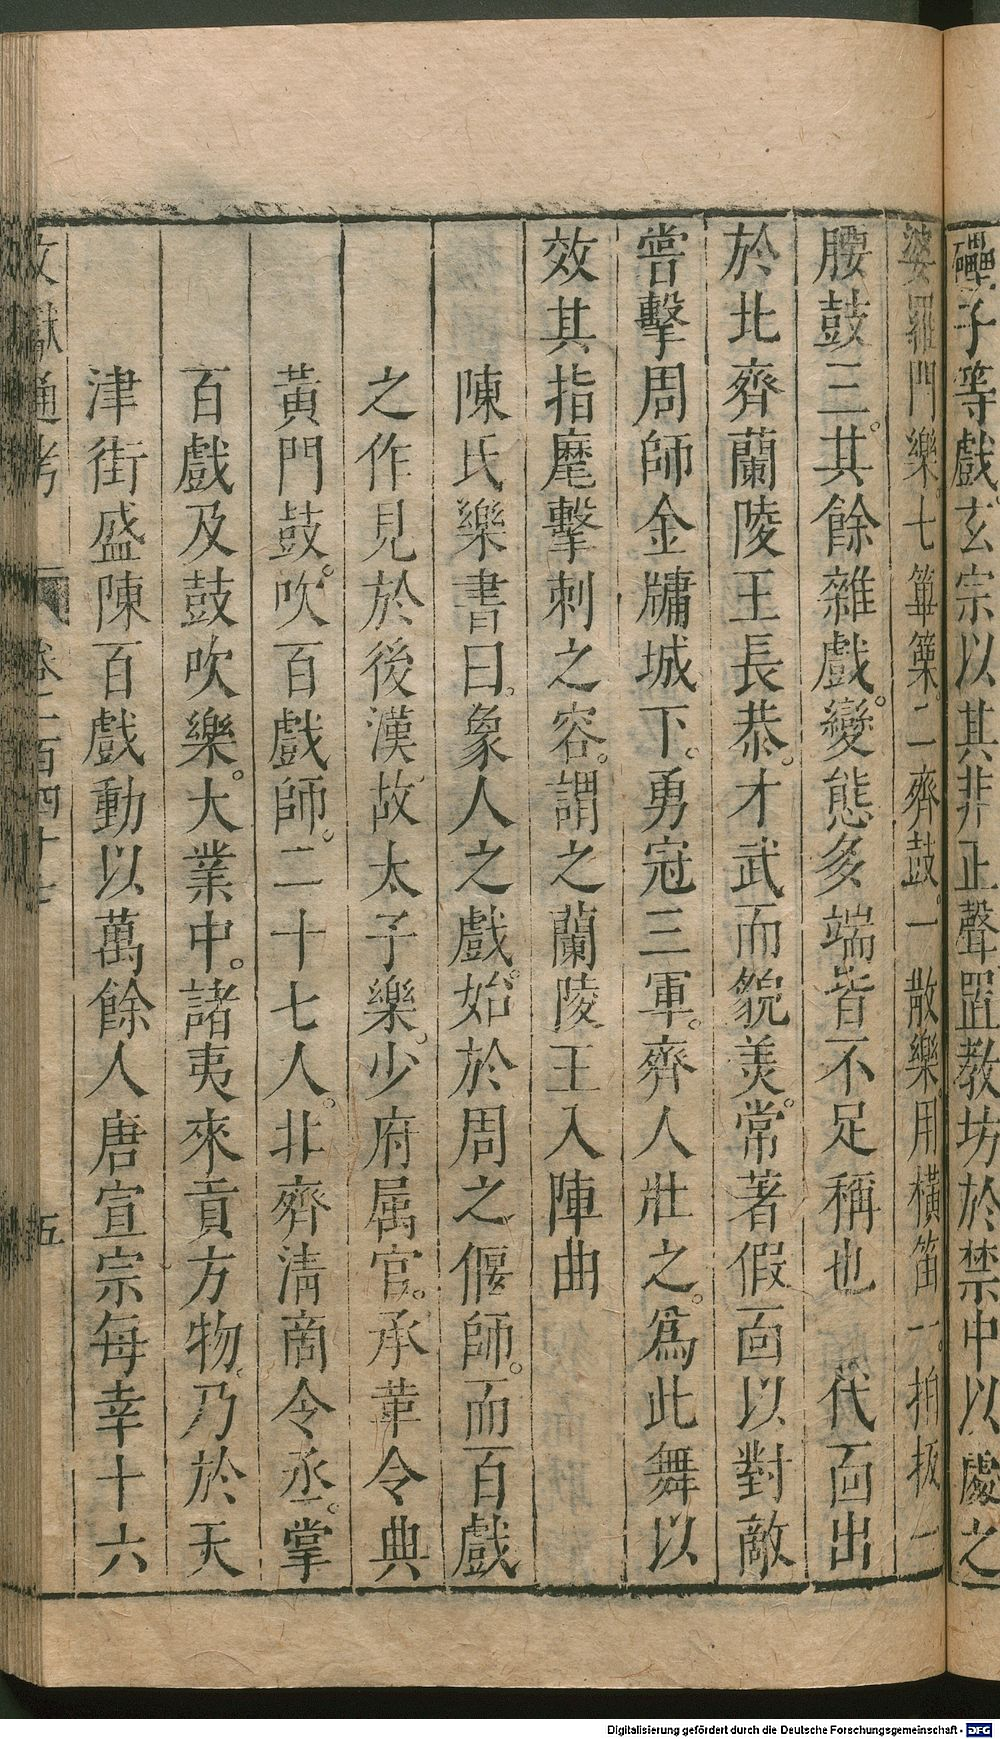 礧子等戲玄宗以其非正聲置教坊於禁中以處之
婆羅門樂。七篳篥。二齊鼓。一散樂。用橫笛一。拍板一
腰鼓三。其餘雜戲。變態多端皆不足稱也 代面出
於北齊蘭陵王長恭。才武而貌美。常著假面以對敵
嘗擊周師金牅城下。勇冠三軍。齊人壯之。爲此舞以
效其指麾擊刺之容。謂之蘭陵王入陣曲
陳氏樂書曰。象人之戲。始於周之偃師。而百戲
之作見於後漢。故太子樂。少府屬官。承華令典
黃門鼓吹。百戲師。二十七人。北齊清商令丞。掌
百戲及鼓吹樂。大業中。諸夷來貢方物。乃於天
津街盛陳百戲動以萬餘人唐宣宗每幸十六
文獻通考 卷一百四十七 五
Digitalisierung gefördert durch die Deutsche Forschungsgemeinschaft - DFG